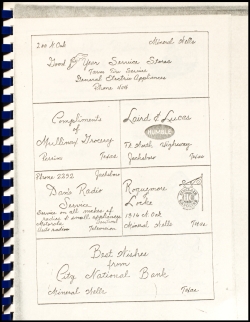 200 N Oak
Mineral Wells
Good Year Service Stores
Town Tire Service
General Electric Appliances
Phone 406
Compliments
of
Mullinax Grocery
Perrin Texas
Laird & Lucas
HUMBLE
Ft Worth Highway
Jacksboro Texas
Phone 2292 Jacksboro
Dan's Radio
Service
Service on all makes of
radios & small appliances
Motorola
Auto radios Television
Roquemore
Locker
1916 N Oak
Mineral Wells Texas
Best Wishes
from
City National Bank
Mineral Wells Texas